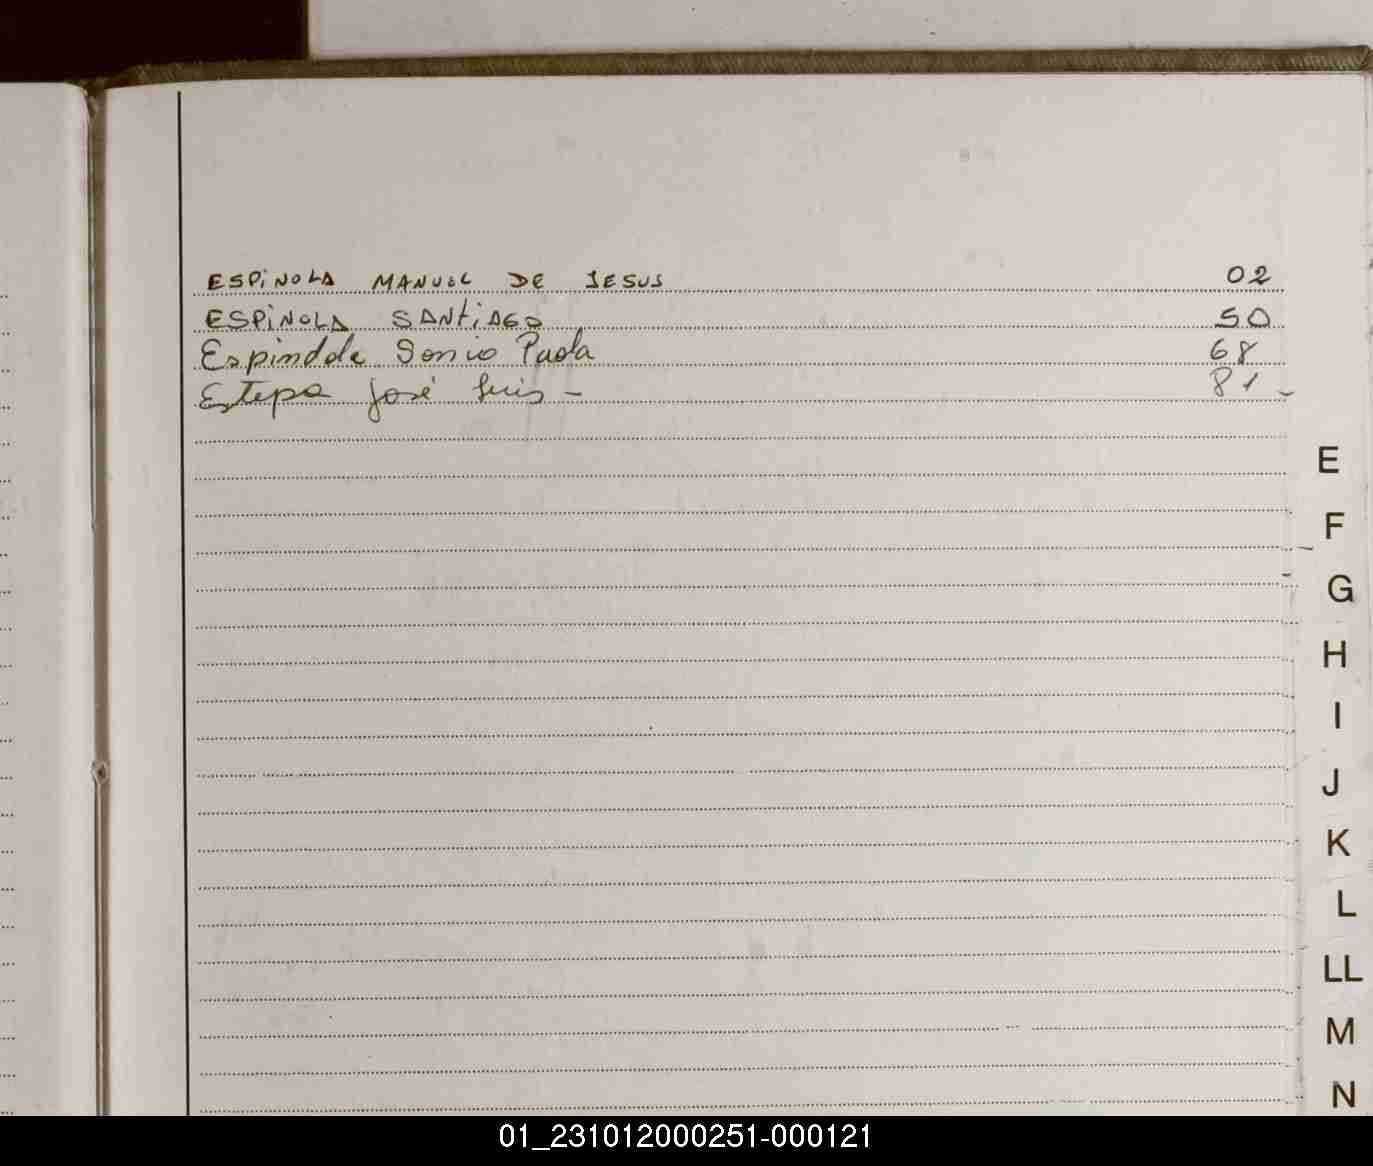 ESPINOLA MANUEL DE JESUS 02
ESPINOLA SANTIAGO 50
Espindola Sonia Paola 68
Estepa José Luis - 81 -
E
F
G
H
I
J
K
L
LL
M
N
01_231012000251-000121